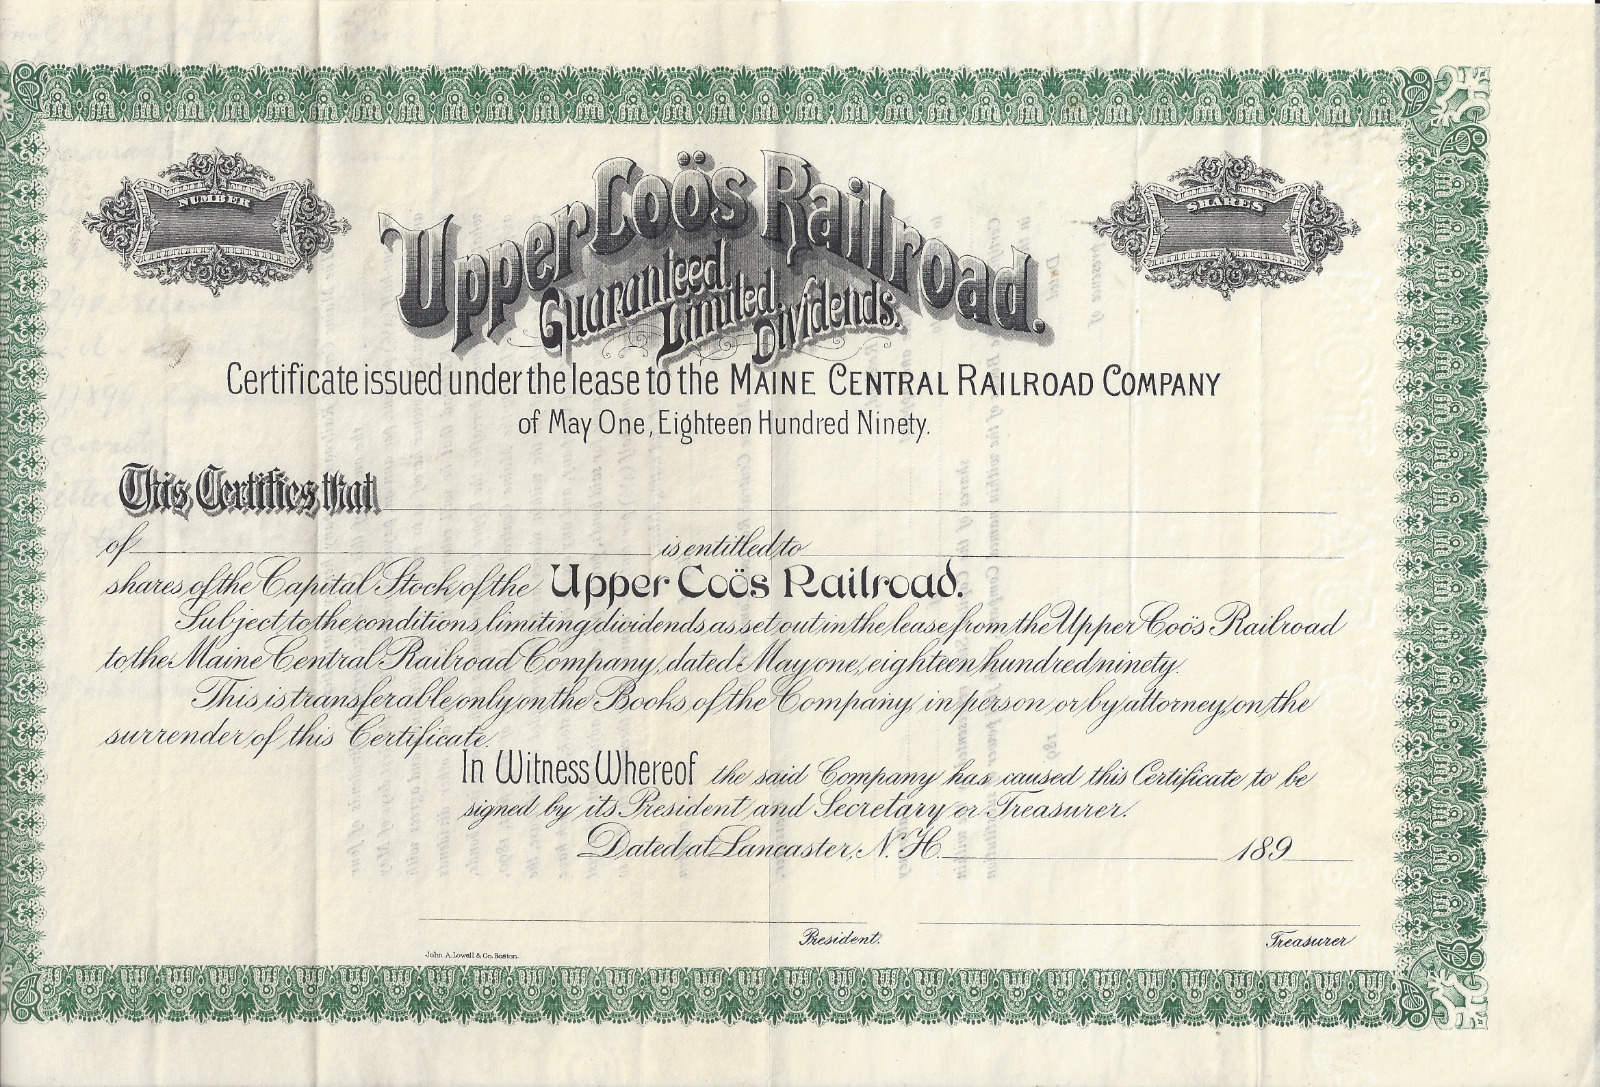 NUMBER
SHARES
Upper Coös Railroad.
Guaranteed.
Limited
Dividends.
Certificate issued under the lease to the MAINE CENTRAL RAILROAD COMPANY
of May One, Eighteen Hundred Ninety.
This Certifies that
of is entitled to
shares of the Capital Stock of the Upper Coös Railroad.
Subject to the conditions, limiting dividends as set out in the lease from the Upper Coös Railroad
to the Maine Central Railroad Company, dated May one, eighteen hundred ninety.
This is transferable only on the Books of the Company, in person or by attorney, on the
surrender of this Certificate.
In Witness Whereof the said Company has caused this Certificate to be
signed by its President and Secretary or Treasurer.
Dated at Lancaster, N. H. 189
President.
Treasurer
John A. Lowell & Co. Boston.